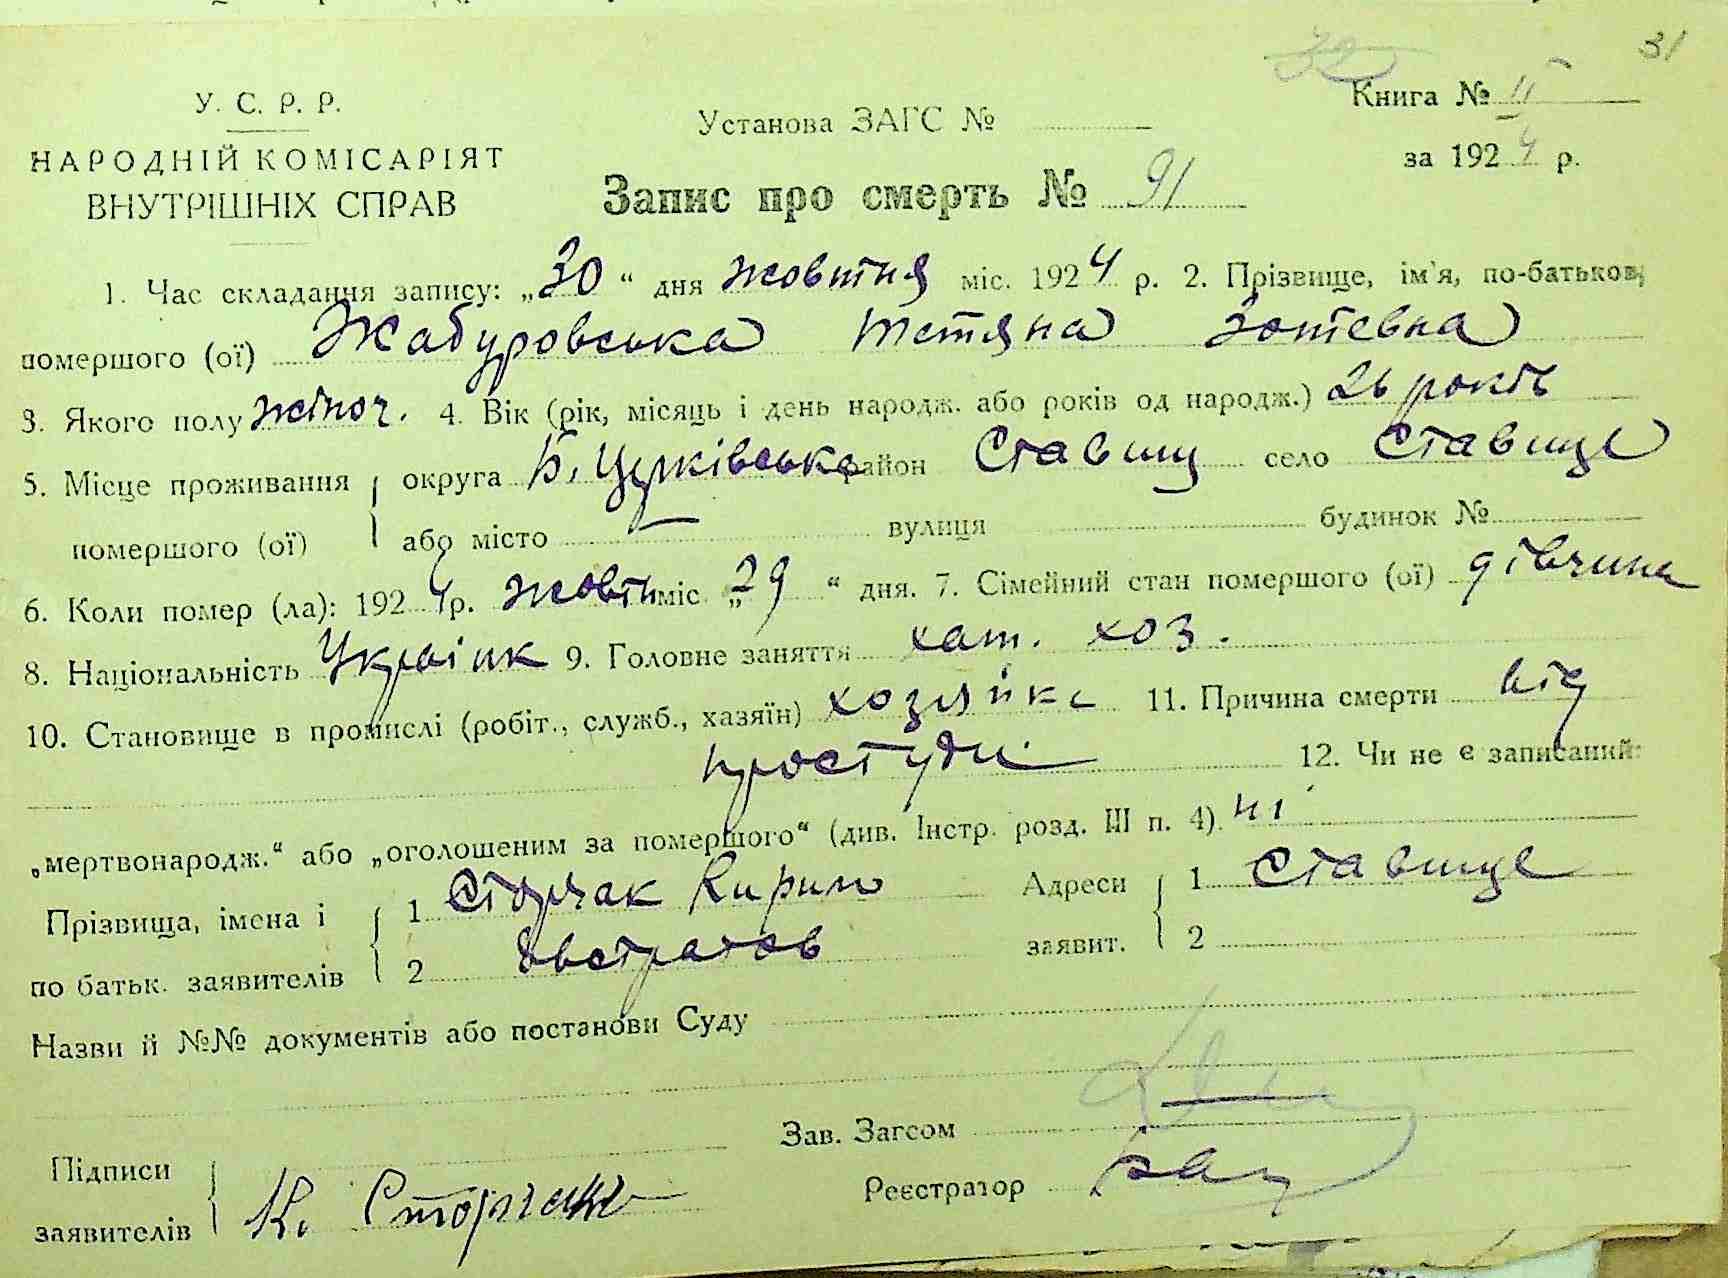 31
32
У. С. Р. Р.
НАРОДНІЙ КОМІСАРІЯТ
ВНУТРІШНІХ СПРАВ
Установа ЗАГС №
Книга № II
за 1924 р.
Запис про смерть № 91
1. Час складання запису: „30“ дня жовтня міс. 1924 р. 2. Прізвище, ім'я, по-батькові
помершого (ої) Жабуровська Тетяна Зотевна
3. Якого полу жіноч. 4. Вік (рік, місяць і день народж. або років од народж.) 26 років
5. Місце проживання округа Б. Церківська район Ставищ село Ставище
помершого (ої) або місто — вулиця будинок №
6. Коли помер (ла): 1924 р. жовтн міс. „29“ дня. 7. Сімейний стан помершого (ої) дівчина
8. Національність Українк 9. Головне заняття хат. хоз.
10. Становище в промислі (робіт., служб., хазяїн) хозяйка 11. Причина смерти від
простуди 12. Чи не є записаний:
„мертвонародж.“ або „оголошеним за помершого“ (див. Інстр. розд. III п. 4) ні
Прізвища, імена і 1 Сторчак Кирило Адреси 1 Ставище
по батьк. заявителів 2 Евстратов заявит. 2
Назви й №№ документів або постанови Суду
Зав. Загсом
Підписи
заявителів К. Сторчак
Реєстратор